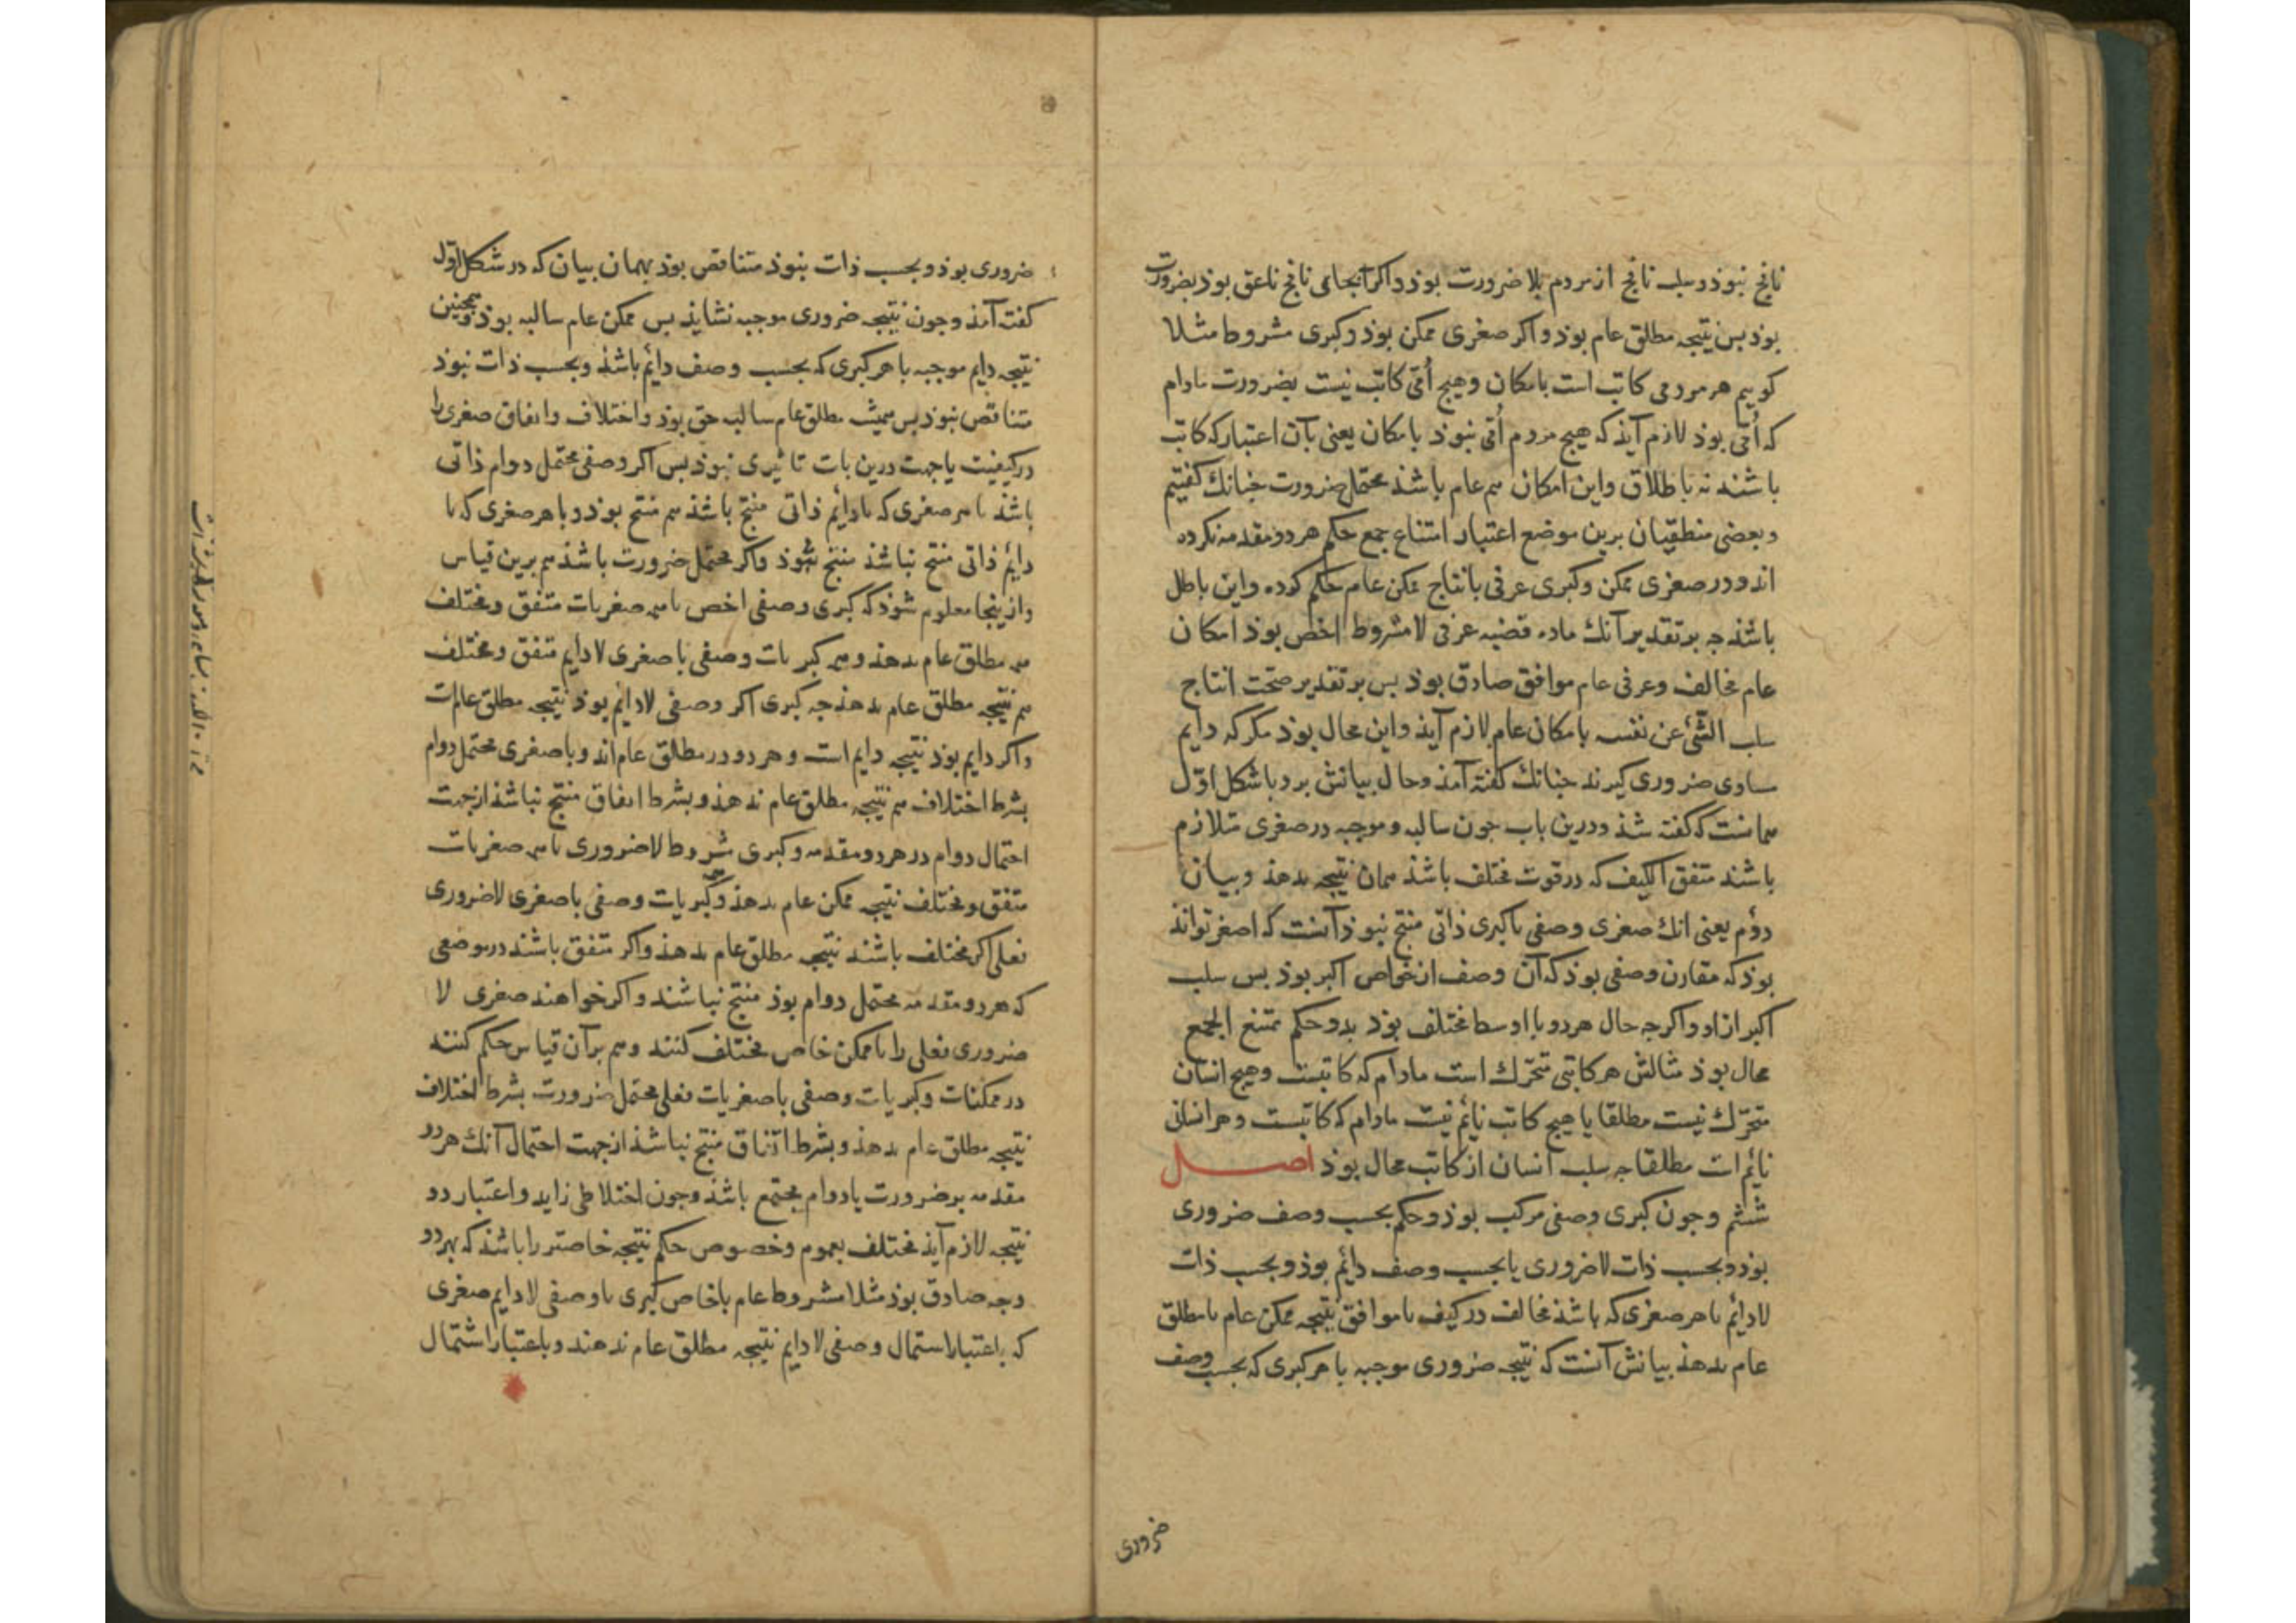 نافخ نبوذ و سلب نافخ از مردم بلا ضرورت بوذ و اکر آنجا کی نافخ ناعق بوذ بضرورت
بوذ بس نتیجه مطلق عام بوذ و اکر صغری ممکن بوذ و کبری مشروط مثلا
کوییم هر مردمی کاتب است بامکان و هیچ اُمّی کاتب نیست بضرورت مادام
که اُمّی بوذ لازم آیذ که هیچ مردم اُمّی نبوذ بامکان یعنی بآن اعتبار که کاتب
باشند نه باطلاق و این امکان هم عام باشذ محتمل ضرورت جنانك کفتیم
و بعضی منطقیان برین موضع اعتبار امتناع جمع حکم هر دو مقدمه نکرده
اند و در صغری ممکن و کبری عرفی بانتاج ممکن عام حکم کرده و این باطل
باشذ جه بر تقدیر آنك ماده قضیه عرفی لا مشروط اخص بوذ امکان
عام مخالف و عرفی عام موافق صادق بوذ بس بر تقدیر صحّت انتاج
سلب الشّیٔ عن نفسه بامکان عام لازم آیذ و این محال بوذ مکر که دایم
مساوی ضروری کیرند جنانك کفته آمذ و حال بیانش برد با شکل اوّل
همانست که کفته شذ و درین باب جون سالبه و موجبه در صغری متلازم
باشند متفق الکیف که در قوت مختلف باشذ همان نتیجه بدهذ و بیان
دوّم یعنی آنك صغری وصفی با کبری ذاتی منتج نبوذ آنست که اصغر تواند
بوذ که مقارن وصفی بوذ که آن وصف از خواص اکبر بوذ بس سلب
اکبر ازو و اکرجه حال هر دو با اوسط مختلف بوذ بدو حکم ممتنع الجمع
محال بوذ مثالش هر کاتبی متحرّك است مادام که کاتبست و هیج انسان
متحرّك نیست مطلقا یا هیج کاتب نایٔم نیست مادام که کاتبست و هر انسانی
نایٔم است مطلقا جه سلب انسان از کاتب محال بوذ اصل
ششم و جون کبری وصفی مرکب بوذ و حکم بحسب وصف ضروری
بوذ و بحسب ذات لاضروری یا بحسب وصف دایٔم بوذ و بحسب ذات
لادایٔم با هر صغری که باشذ مخالف در کیف یا موافق نتیجه ممکن عام یا مطلق
عام بدهذ بیانش آنست که نتیجه ضروری موجبه با هر کبری که بحسب وصف
ضروری
ضروری بوذ و بحسب ذات نبوذ متناقض بوذ بهمان بیان که در شکل اوّل
کفته آمذ و جون نتیجه ضروری موجبه نشایذ بس ممکن عام سالبه بوذ و همجنین
نتیجه دایم موجبه با هر کبری که بحسب وصف دایٔم باشذ و بحسب ذات نبوذ
متناقض نبوذ بس همیشه مطلق عام سالبه حق بوذ و اختلاف و اتفاق صغری را
در کیفیت یا جهت درین باب تاثیری نبوذ بس اکر وصفی محتمل دوام ذاتی
باشذ با هر صغری که با دایٔم ذاتی منتج باشذ هم منتج بوذ و با هر صغری که با
دایٔم ذاتی منتج نباشذ منتج نبوذ و اکر محتمل ضرورت باشذ هم برین قیاس
و ازینجا معلوم شوذ که کبری وصفی اخص با همه صغریات متفق و مختلف
همه مطلق عام بدهذ و همه کبریات وصفی با صغری لادایٔم متفق و مختلف
هم نتیجه مطلق عام بدهذ جه کبری اکر وصفی لادایٔم بوذ نتیجه مطلق عام است
و اکر دایم بوذ نتیجه دایم است و هر دو در مطلق عام اند و با صغری محتمل دوام
بشرط اختلاف هم نتیجه مطلق عام بدهذ و بشرط اتفاق منتج نباشذ از جهت
احتمال دوام در هر دو مقدمه و کبری مشروط لاضروری با همه صغریات
متفق و مختلف نتیجه ممکن عام بدهذ و همه کبریات وصفی با صغری لاضروری
فعلی اکر مختلف باشند نتیجه مطلق عام بدهذ و اکر متفق باشند در موضعی
که هر دو مقدمه محتمل دوام بوذ منتج نباشند و اکر خواهند صغری لا
ضروری فعلی را با ممکن خاص مختلف کنند و هم بر آن قیاس حکم کنند
در ممکنات و کبریات وصفی با صغریات فعلی محتمل ضرورت بشرط اختلاف
نتیجه مطلق عام بدهذ و بشرط اتفاق منتج نباشذ از جهت احتمال آنك هر دو
مقدمه بر ضرورت یا دوام مجتمع باشذ و جون اختلاطی زاید و اعتبار دو
نتیجه لازم آیذ مختلف بعموم و خصوص حکم نتیجه خاصتر را باشذ که بهر دو
وجه صادق بوذ مثلا مشروط عام یا خاص کبری با وصفی لادایم صغری
که باعتبار استمال وصفی لادایم نتیجه مطلق عام بدهند و باعتبار اشتمال